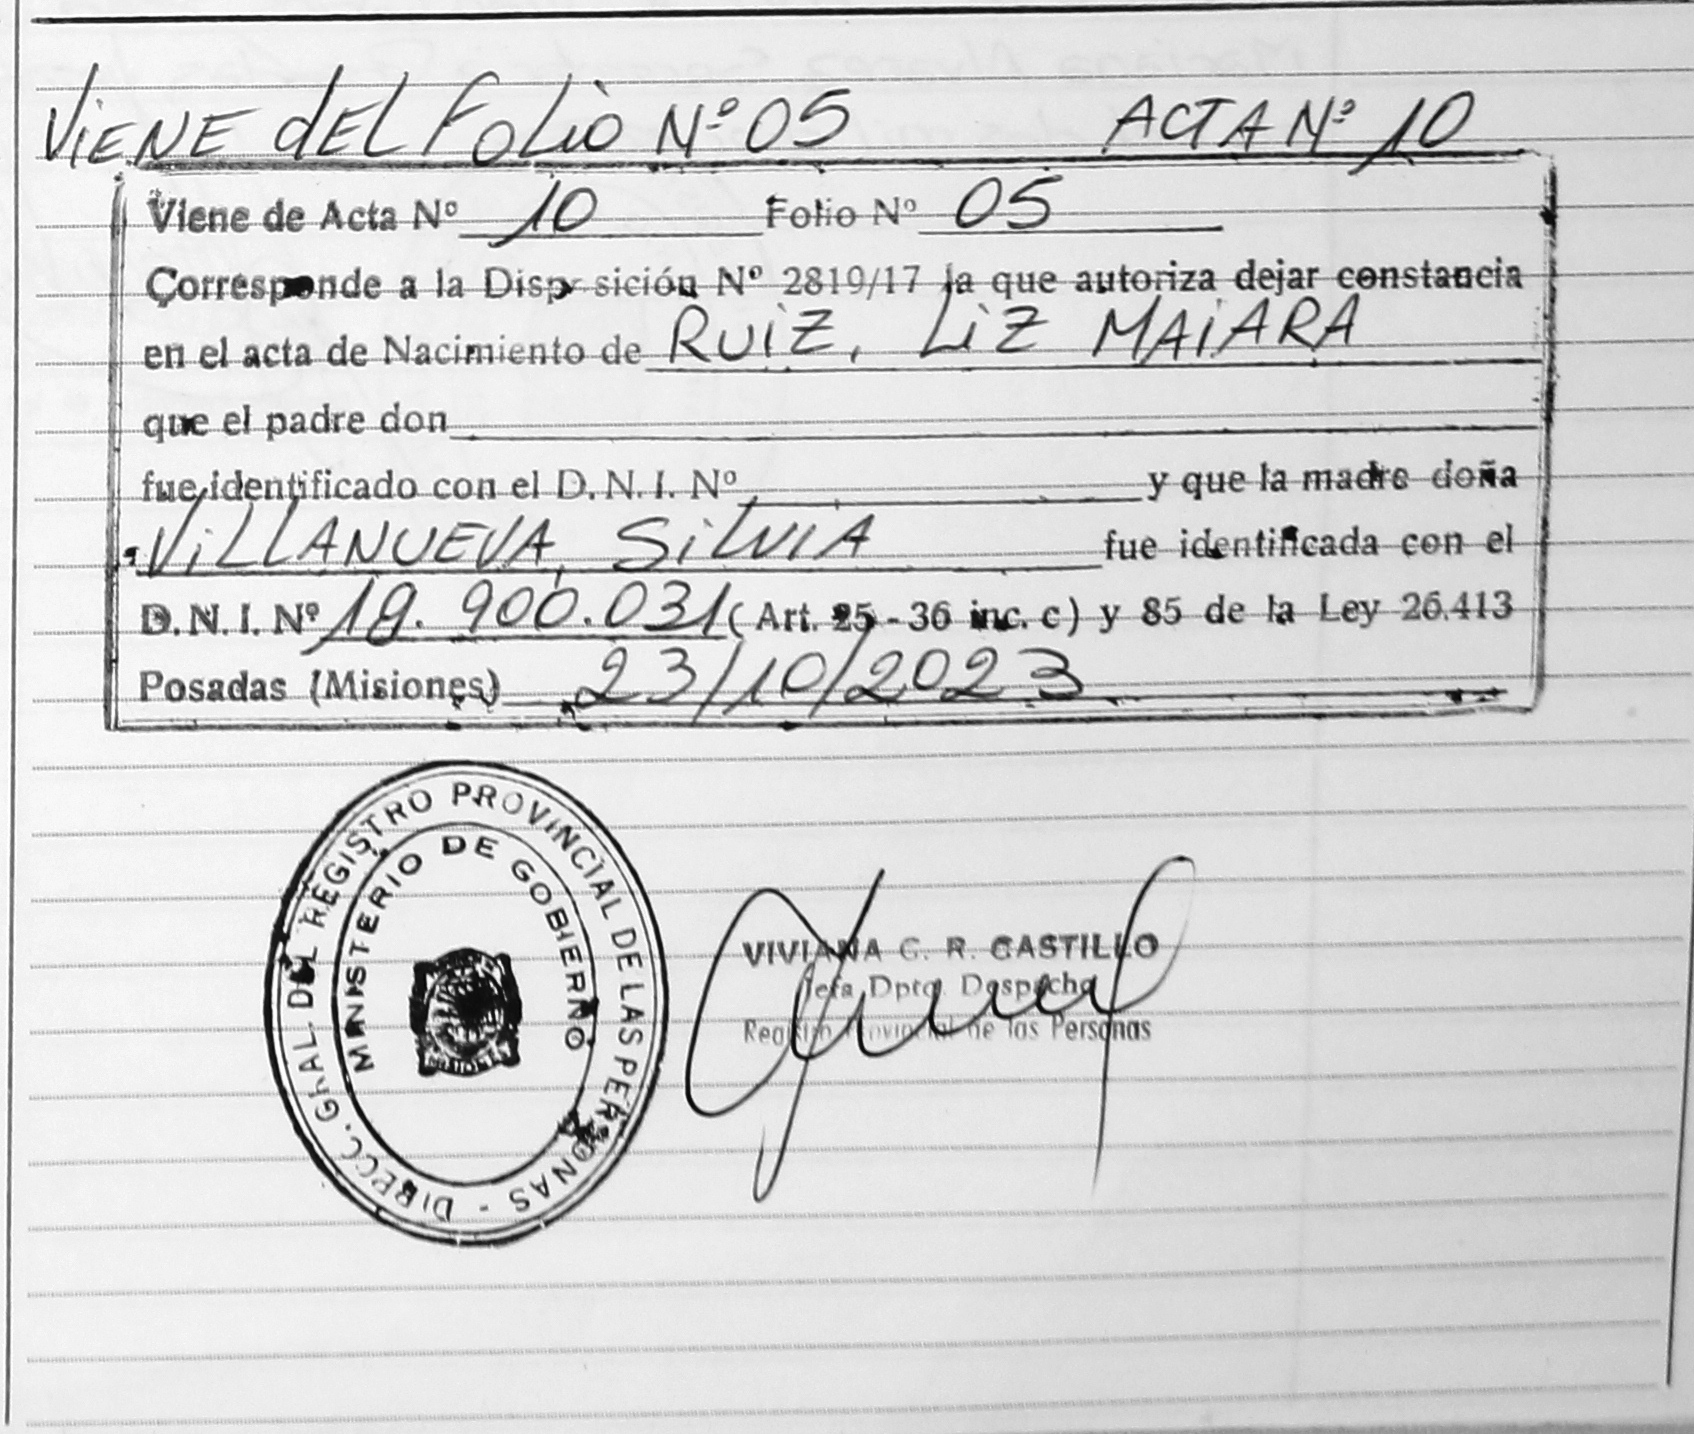 ViENE dEL FoLio Nº 05 ACTA Nº 10
Viene de Acta Nº 10 Folio Nº 05
Corresponde a la Disposición Nº 2819/17 la que autoriza dejar constancia
en el acta de Nacimiento de RUiZ, LiZ MAiARA
que el padre don
fue identificado con el D.N.I. Nº y que la madre doña
ViLLANUEVA, SiLVIA fue identificada con el
D.N.I. Nº 18.900.031 (Art. 25 - 36 inc. c) y 85 de la Ley 26.413
Posadas (Misiones) 23/10/2023
DIRECC. GRAL. DEL REGISTRO PROVINCIAL DE LAS PERSONAS -
MINISTERIO DE GOBIERNO
MISIONES
VIVIANA G. R. CASTILLO
Jefa Dpto. Despacho
Registro Provincial de las Personas